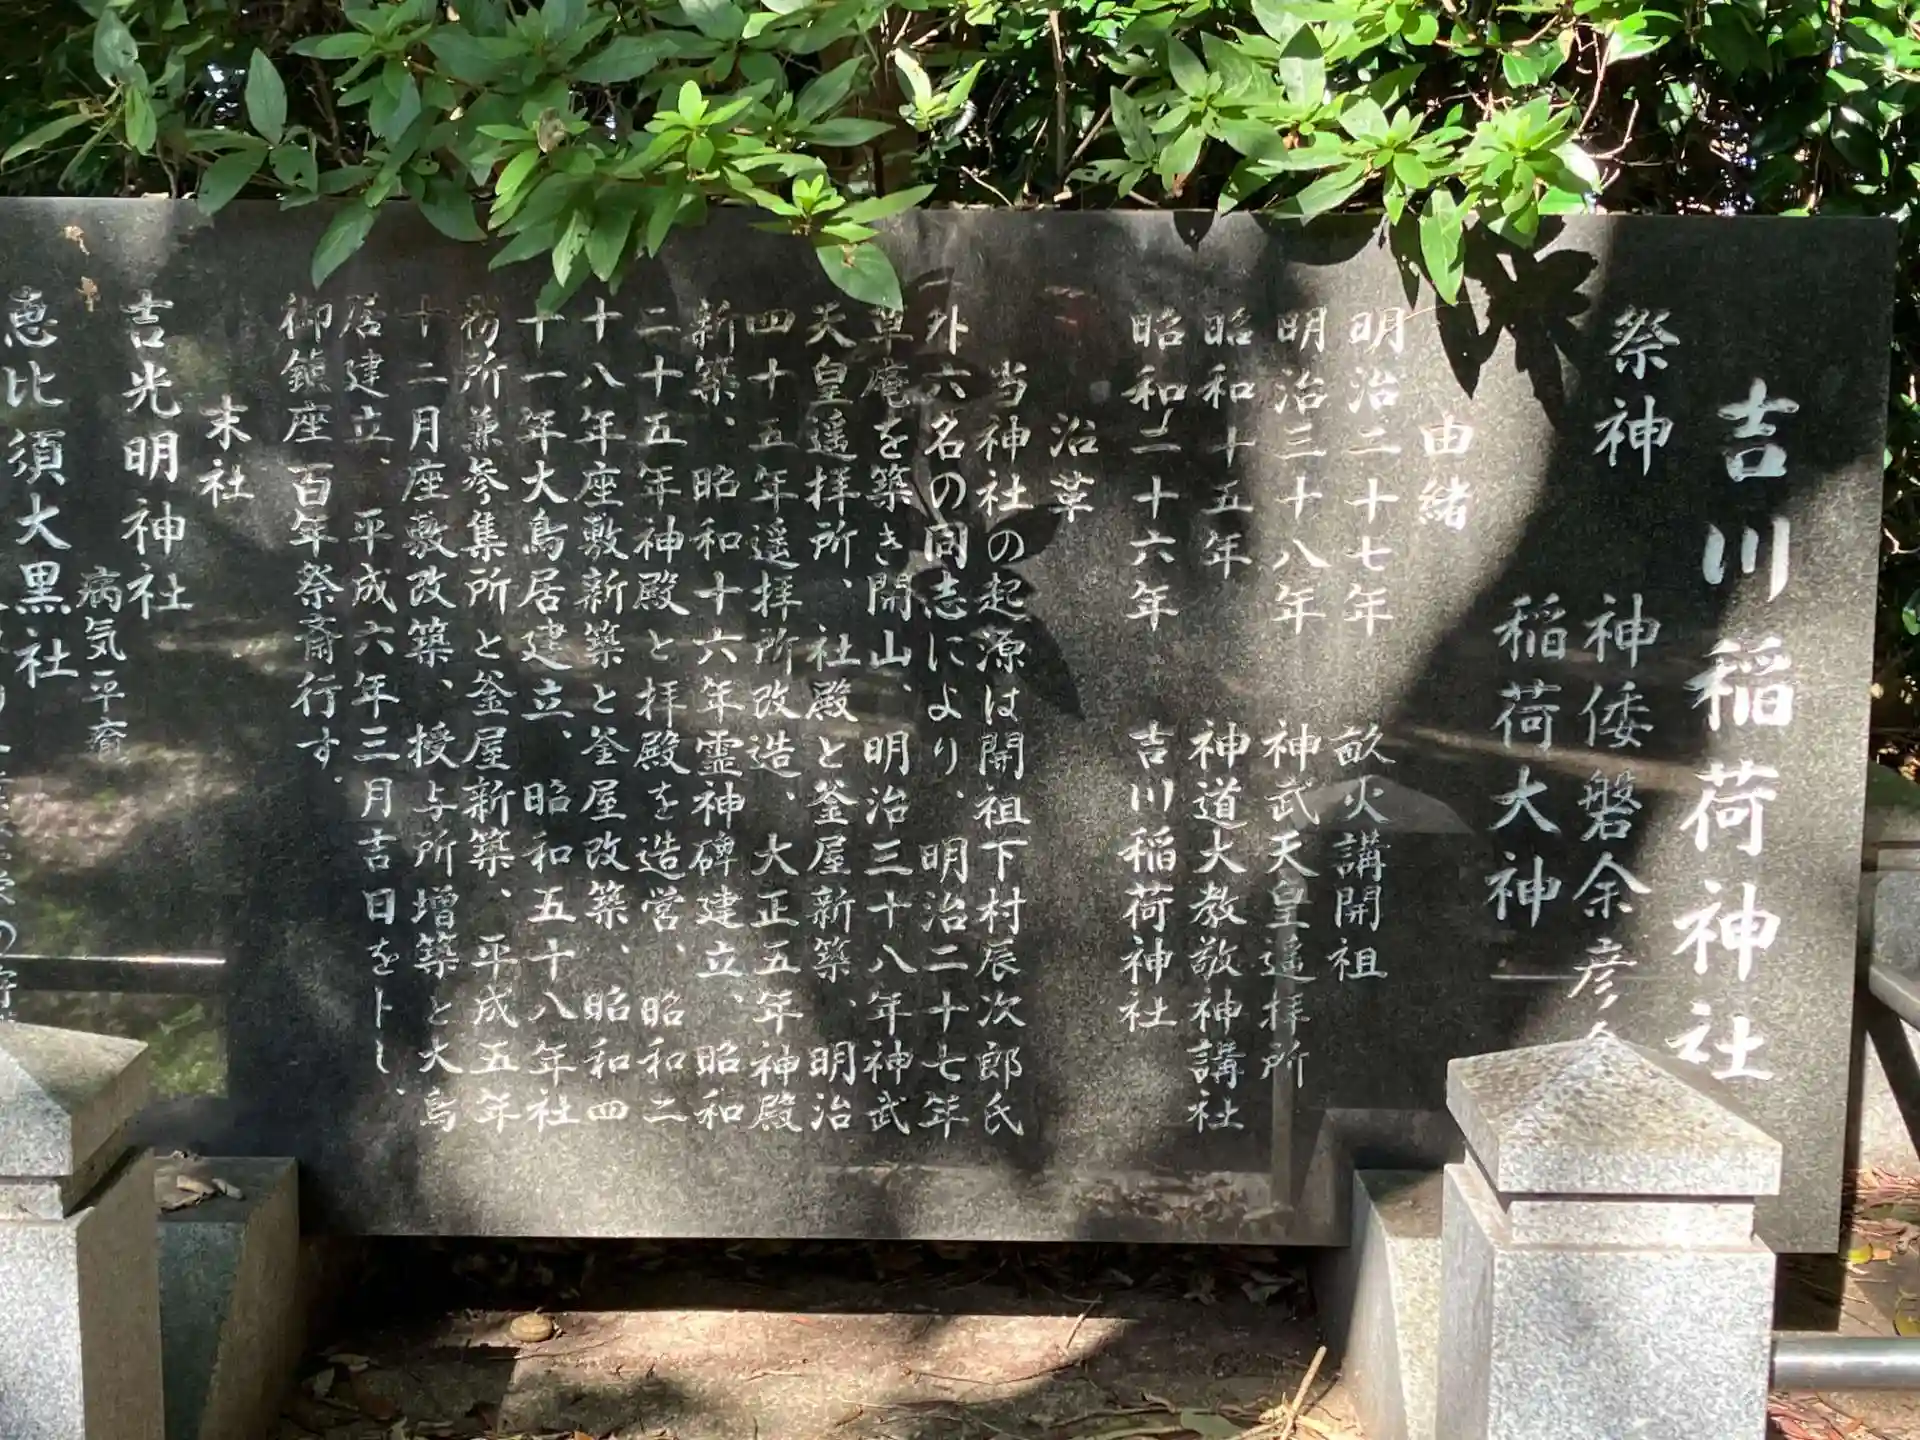 吉川稲荷神社
祭神
神倭磐余彦
稲荷大神
由緒
明治二十七年 畝火講開祖
明治三十八年 神武天皇遥拝所
昭和十五年 神道大教敬神講社
昭和二十六年 吉川稲荷神社
沿革
当神社の起源は開祖下村辰次郎氏
外六名の同志により、明治二十七年
草庵を築き開山、明治三十八年神武
天皇遥拝所、社殿と釜屋新築、明治
四十五年遥拝所改造、大正五年神殿
新築、昭和十六年霊神碑建立、昭和
二十五年神殿と拝殿を造営、昭和二
十八年座敷新築と釜屋改築、昭和四
十一年大鳥居建立、昭和五十八年社
務所兼参集所と釜屋新築、平成五年
十二月座敷改築、授与所増築と大鳥
居建立、平成六年三月吉日を卜し、
御鎮座百年祭斎行す.
末社
吉光明神社
病気平癒
恵比須大黒社